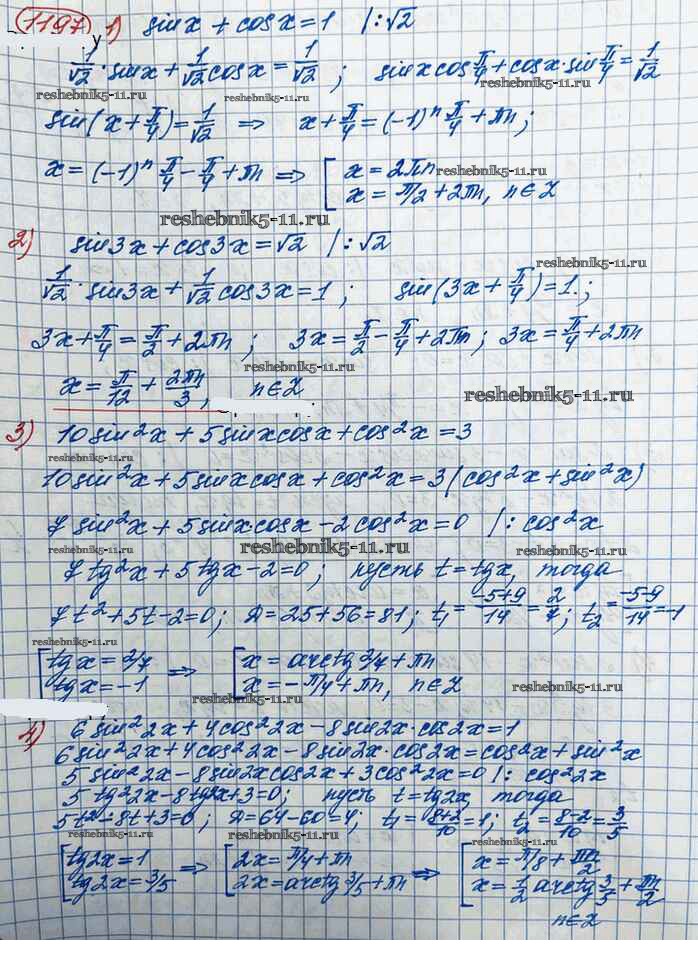 1197 1) sinx + cosx = 1 |:√2
1/√2 · sinx + 1/√2 cosx = 1/√2 ; sinx cos π/4 + cosx · sin π/4 = 1/√2
reshebnik5-11.ru reshebnik5-11.ru
sin(x + π/4) = 1/√2 ⇒ x + π/4 = (-1)ⁿ π/4 + πn;
x = (-1)ⁿ π/4 - π/4 + πn ⇒ [ x = 2πn
x = π/2 + 2πn, n∈Z
reshebnik5-11.ru
reshebnik5-11.ru
2) sin3x + cos3x = √2 |:√2
reshebnik5-11.ru
1/√2 · sin3x + 1/√2 cos3x = 1 ; sin(3x + π/4) = 1 ;
3x + π/4 = π/2 + 2πn ; 3x = π/2 - π/4 + 2πn ; 3x = π/4 + 2πn
reshebnik5-11.ru
x = π/12 + 2πn/3 , n∈Z
reshebnik5-11.ru
3) 10sin²x + 5sinxcosx + cos²x = 3
reshebnik5-11.ru
10sin²x + 5sinxcosx + cos²x = 3(cos²x + sin²x)
7sin²x + 5sinxcosx - 2cos²x = 0 |: cos²x
reshebnik5-11.ru
7tg²x + 5tgx - 2 = 0 ; пусть t = tgx, тогда
7t² + 5t - 2 = 0 ; Д = 25 + 56 = 81 ; t₁ = -5+9/14 = 2/7 ; t₂ = -5-9/14 = -1
reshebnik5-11.ru
[ tgx = 2/7 ⇒ [ x = arctg 2/7 + πn
tgx = -1 x = -π/4 + πn, n∈Z
reshebnik5-11.ru reshebnik5-11.ru
4) 6sin²2x + 4cos²2x - 8sin2x·cos2x = 1
6sin²2x + 4cos²2x - 8sin2x·cos2x = cos²x + sin²x
5sin²2x - 8sin2xcos2x + 3cos²2x = 0 |: cos²2x
5tg²2x - 8tg2x + 3 = 0 ; пусть t = tg2x, тогда
5t² - 8t + 3 = 0 ; Д = 64 - 60 = 4 ; t₁ = 8+2/10 = 1 ; t₂ = 8-2/10 = 3/5
reshebnik5-11.ru reshebnik5-11.ru
[ tg2x = 1 ⇒ [ 2x = π/4 + πn ⇒ [ x = π/8 + πn/2
tg2x = 3/5 2x = arctg 3/5 + πn x = 1/2 arctg 3/5 + πn/2
n∈Z